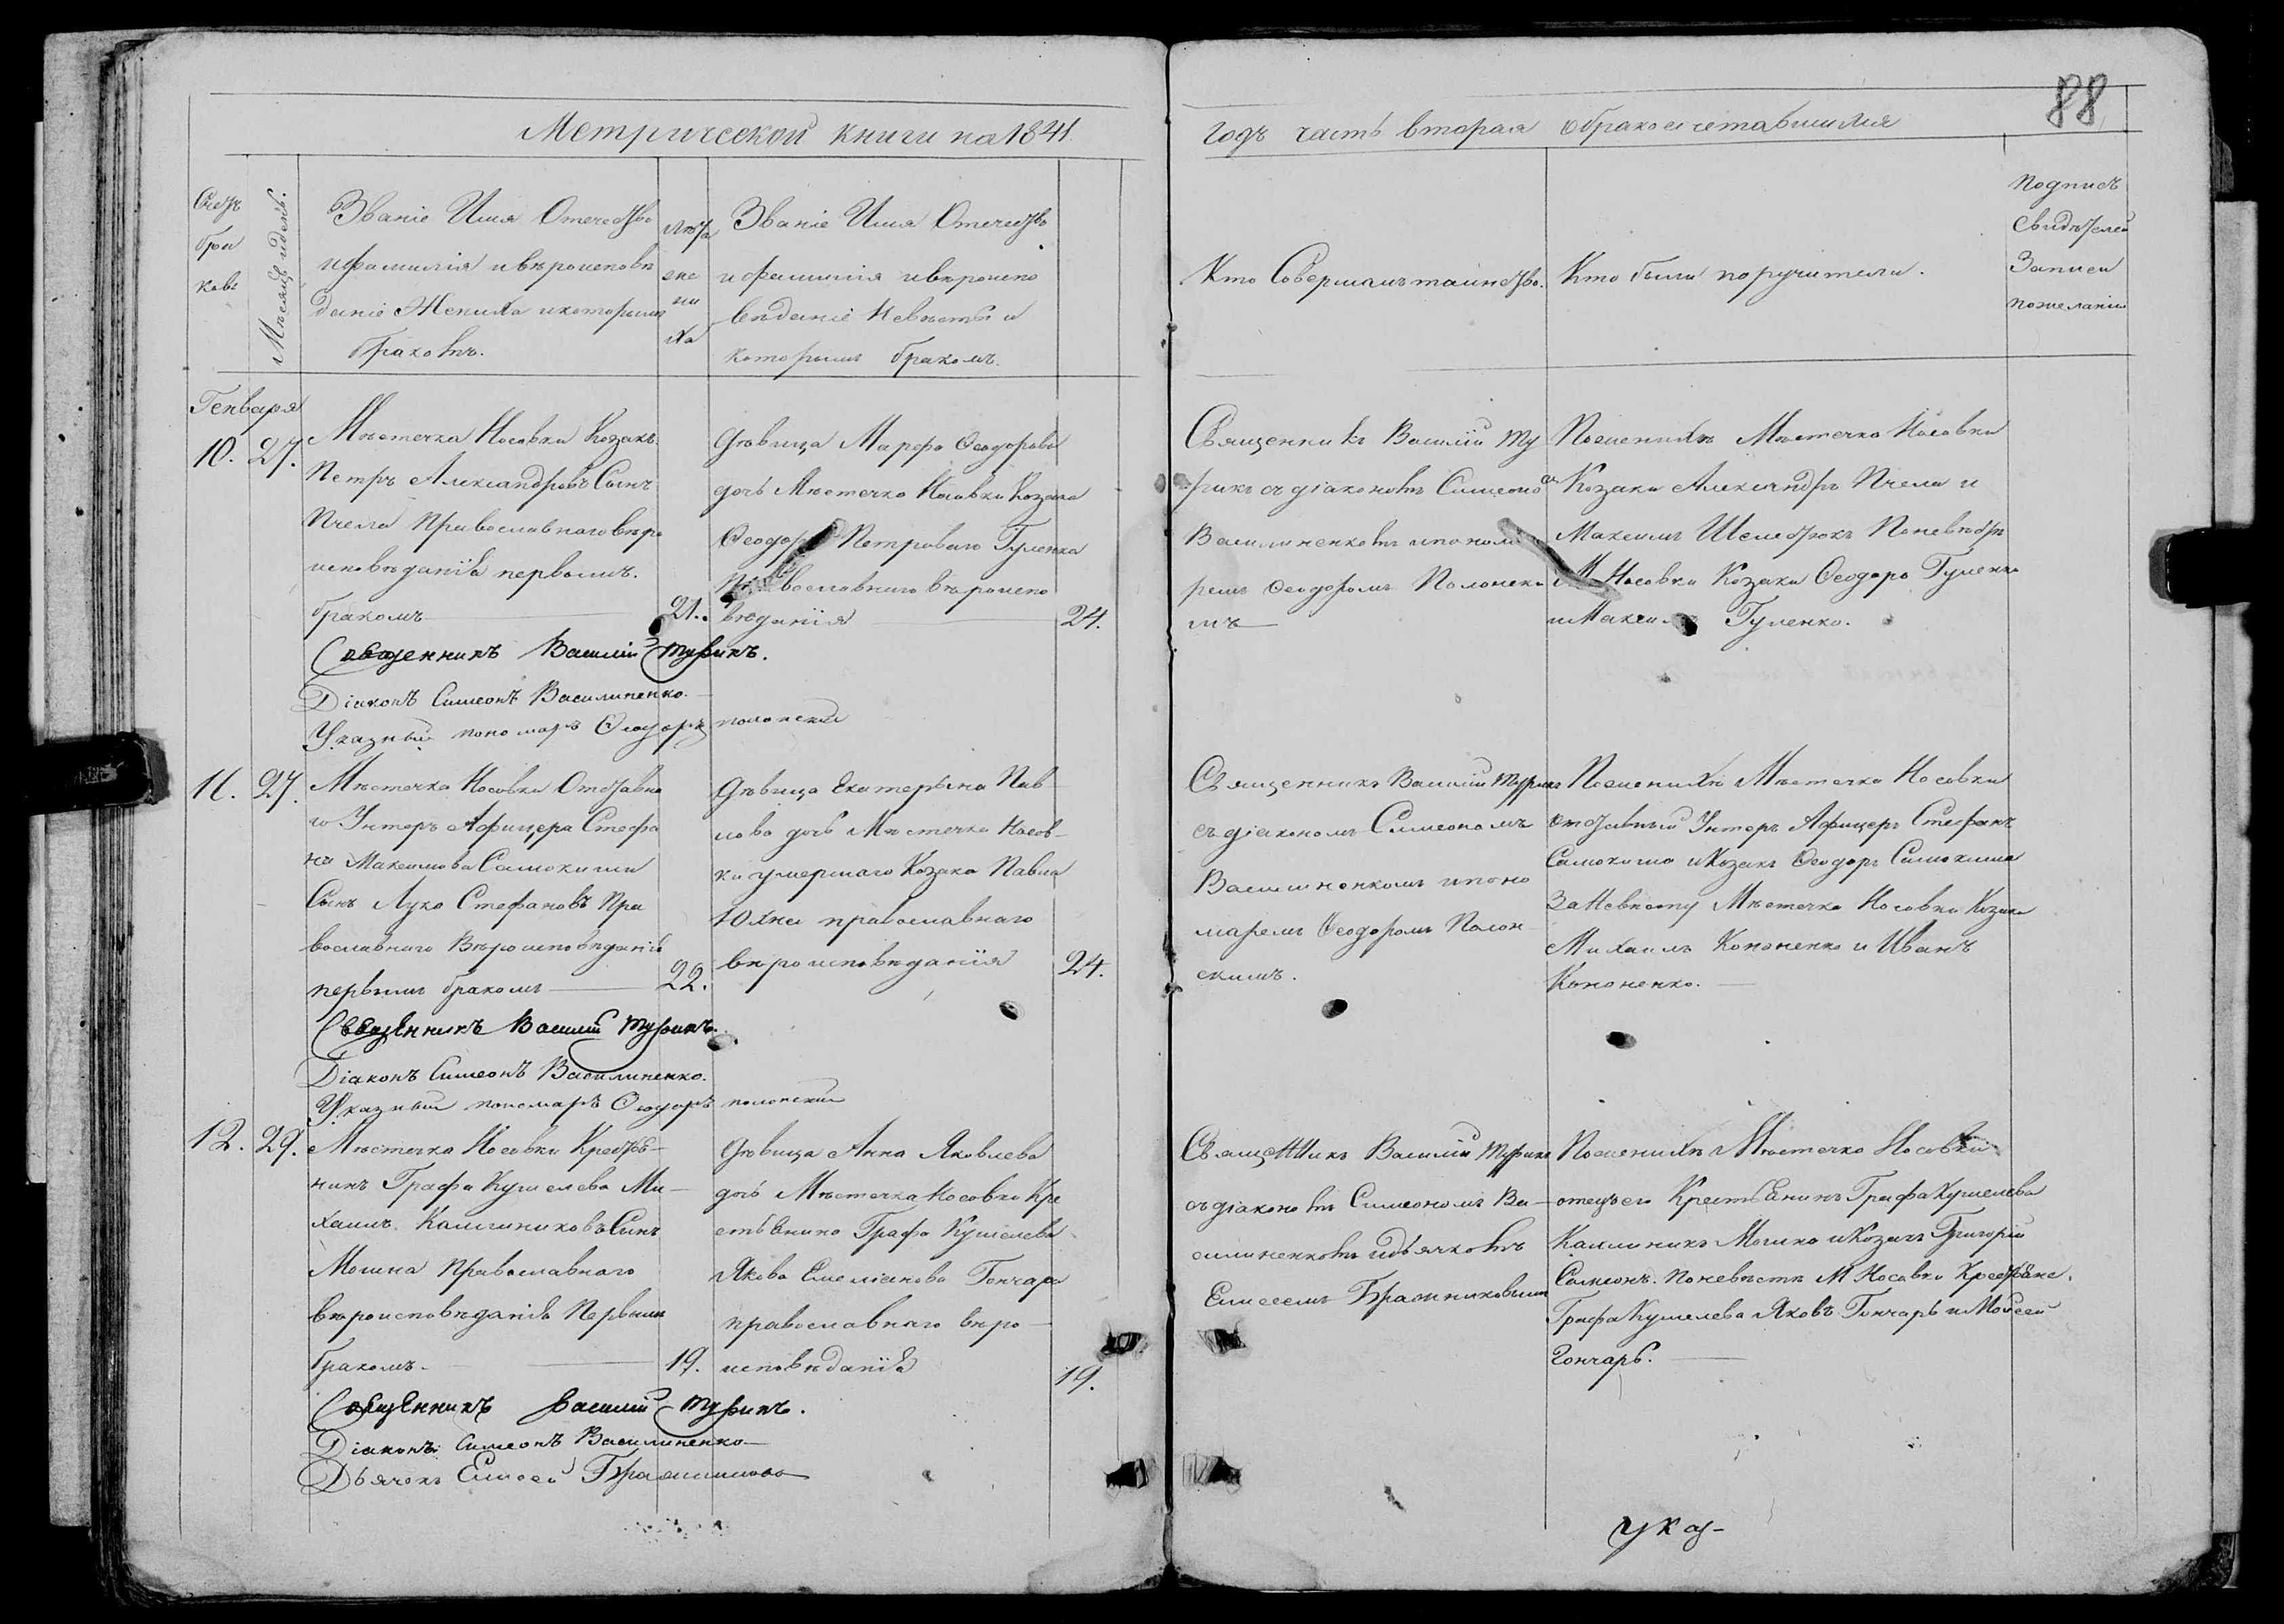 88
Метрической книги на 1841
годъ часть вторая о бракосочетавшихся
Счетъ
бра
ковъ
Мѣсяцъ и день.
Званіе Имя Отечество
и фамилія и вѣроисповѣ
даніе Жениха и которымъ
бракомъ.
лѣта
же
ни
ха
Званіе Имя Отечество
и фамилія и вѣроиспо
вѣданіе Невѣсты и
которымъ бракомъ.
Кто Совершалъ таинство.
Кто были поручители.
Подпись
свидѣтелей
Записи
по желанію
Генваря
10. 27.
Мѣстечка Носовки Козакъ
Петръ Александровъ Сынъ
Пчела Православнаго вѣро
исповѣданія первымъ
бракомъ
21.
Дѣвица Марфа Феодорова
дочь Мѣстечка Носовки Козака
Феодора Петроваго Гуленка
Православнаго вѣроиспо
вѣданія
24.
Священникъ Василій Ту
рикъ съ діакономъ Симеоно
Василиненкомъ и понома
ремъ Феодоромъ Полонски
мъ
По женихѣ Мѣстечка Носовки
Козаки Александръ Пчела и
Максимъ По невѣстѣ
М. Носовки Козаки Феодоръ Гуленко
и Максимъ Гуленко.
Священникъ Василій Турикъ.
Діаконъ Симеонъ Василиненко.
Указный пономарь Феодоръ полонский
11. 27.
Мѣстечка Носовки Отставна
го Унтеръ Афицера Стефа
на Максимова Самокиши
Сынъ Лука Стефановъ Пра
вославнаго Вѣроисповѣданія
первымъ бракомъ
22.
Дѣвица Екатерына Пав
лова дочь Мѣстечка Носов-
ки умершаго Козака Павла
Юхна православнаго
вѣроисповѣданія
24.
Священникъ Василій Турикъ
съ діакономъ Симеономъ
Василиненкомъ и поно
маремъ Феодоромъ Полон
скимъ.
По женихѣ Мѣстечка Носовки
отставный Унтеръ Афицеръ Стефанъ
Самокиша и Козакъ Феодоръ Самокиша
За Невѣсту Мѣстечка Носовки Козаки
Михаилъ Кононенко и Иванъ
Кононенко.
Священникъ Василій Турикъ.
Діаконъ Симеонъ Василиненко.
Указный пономарь Феодоръ полонский
12. 29.
Мѣстечка Носовки Крестья-
нинъ Графа Кушелева Ми-
хаилъ Каллиниковъ Сынъ
Мошна Православнаго
вѣроисповѣданія Первымъ
бракомъ.
19.
Дѣвица Анна Яковлева
дочь Мѣстечка Носовки Кре
стьянина Графа Кушелева
Якова Емеліанова Гончара
православнаго вѣро-
исповѣданія
19.
Священникъ Василій Турикъ
съ діакономъ Симеономъ Ва-
силиненкомъ и дьячкомъ
Елисеемъ Бражниковымъ
По женихѣ Мѣстечка Носовки
отецъ его Крестьянинъ Графа Кушелева
Каллиникъ Мошна и Козакъ Григорій
По невѣстѣ М Носовки Крестьяне
Графа Кушелева Яковъ Гончаръ и Моисей
Гончаръ.
Священникъ Василій Турикъ.
Діаконъ Симеонъ Василиненко
Дьячекъ Елисей
указ-